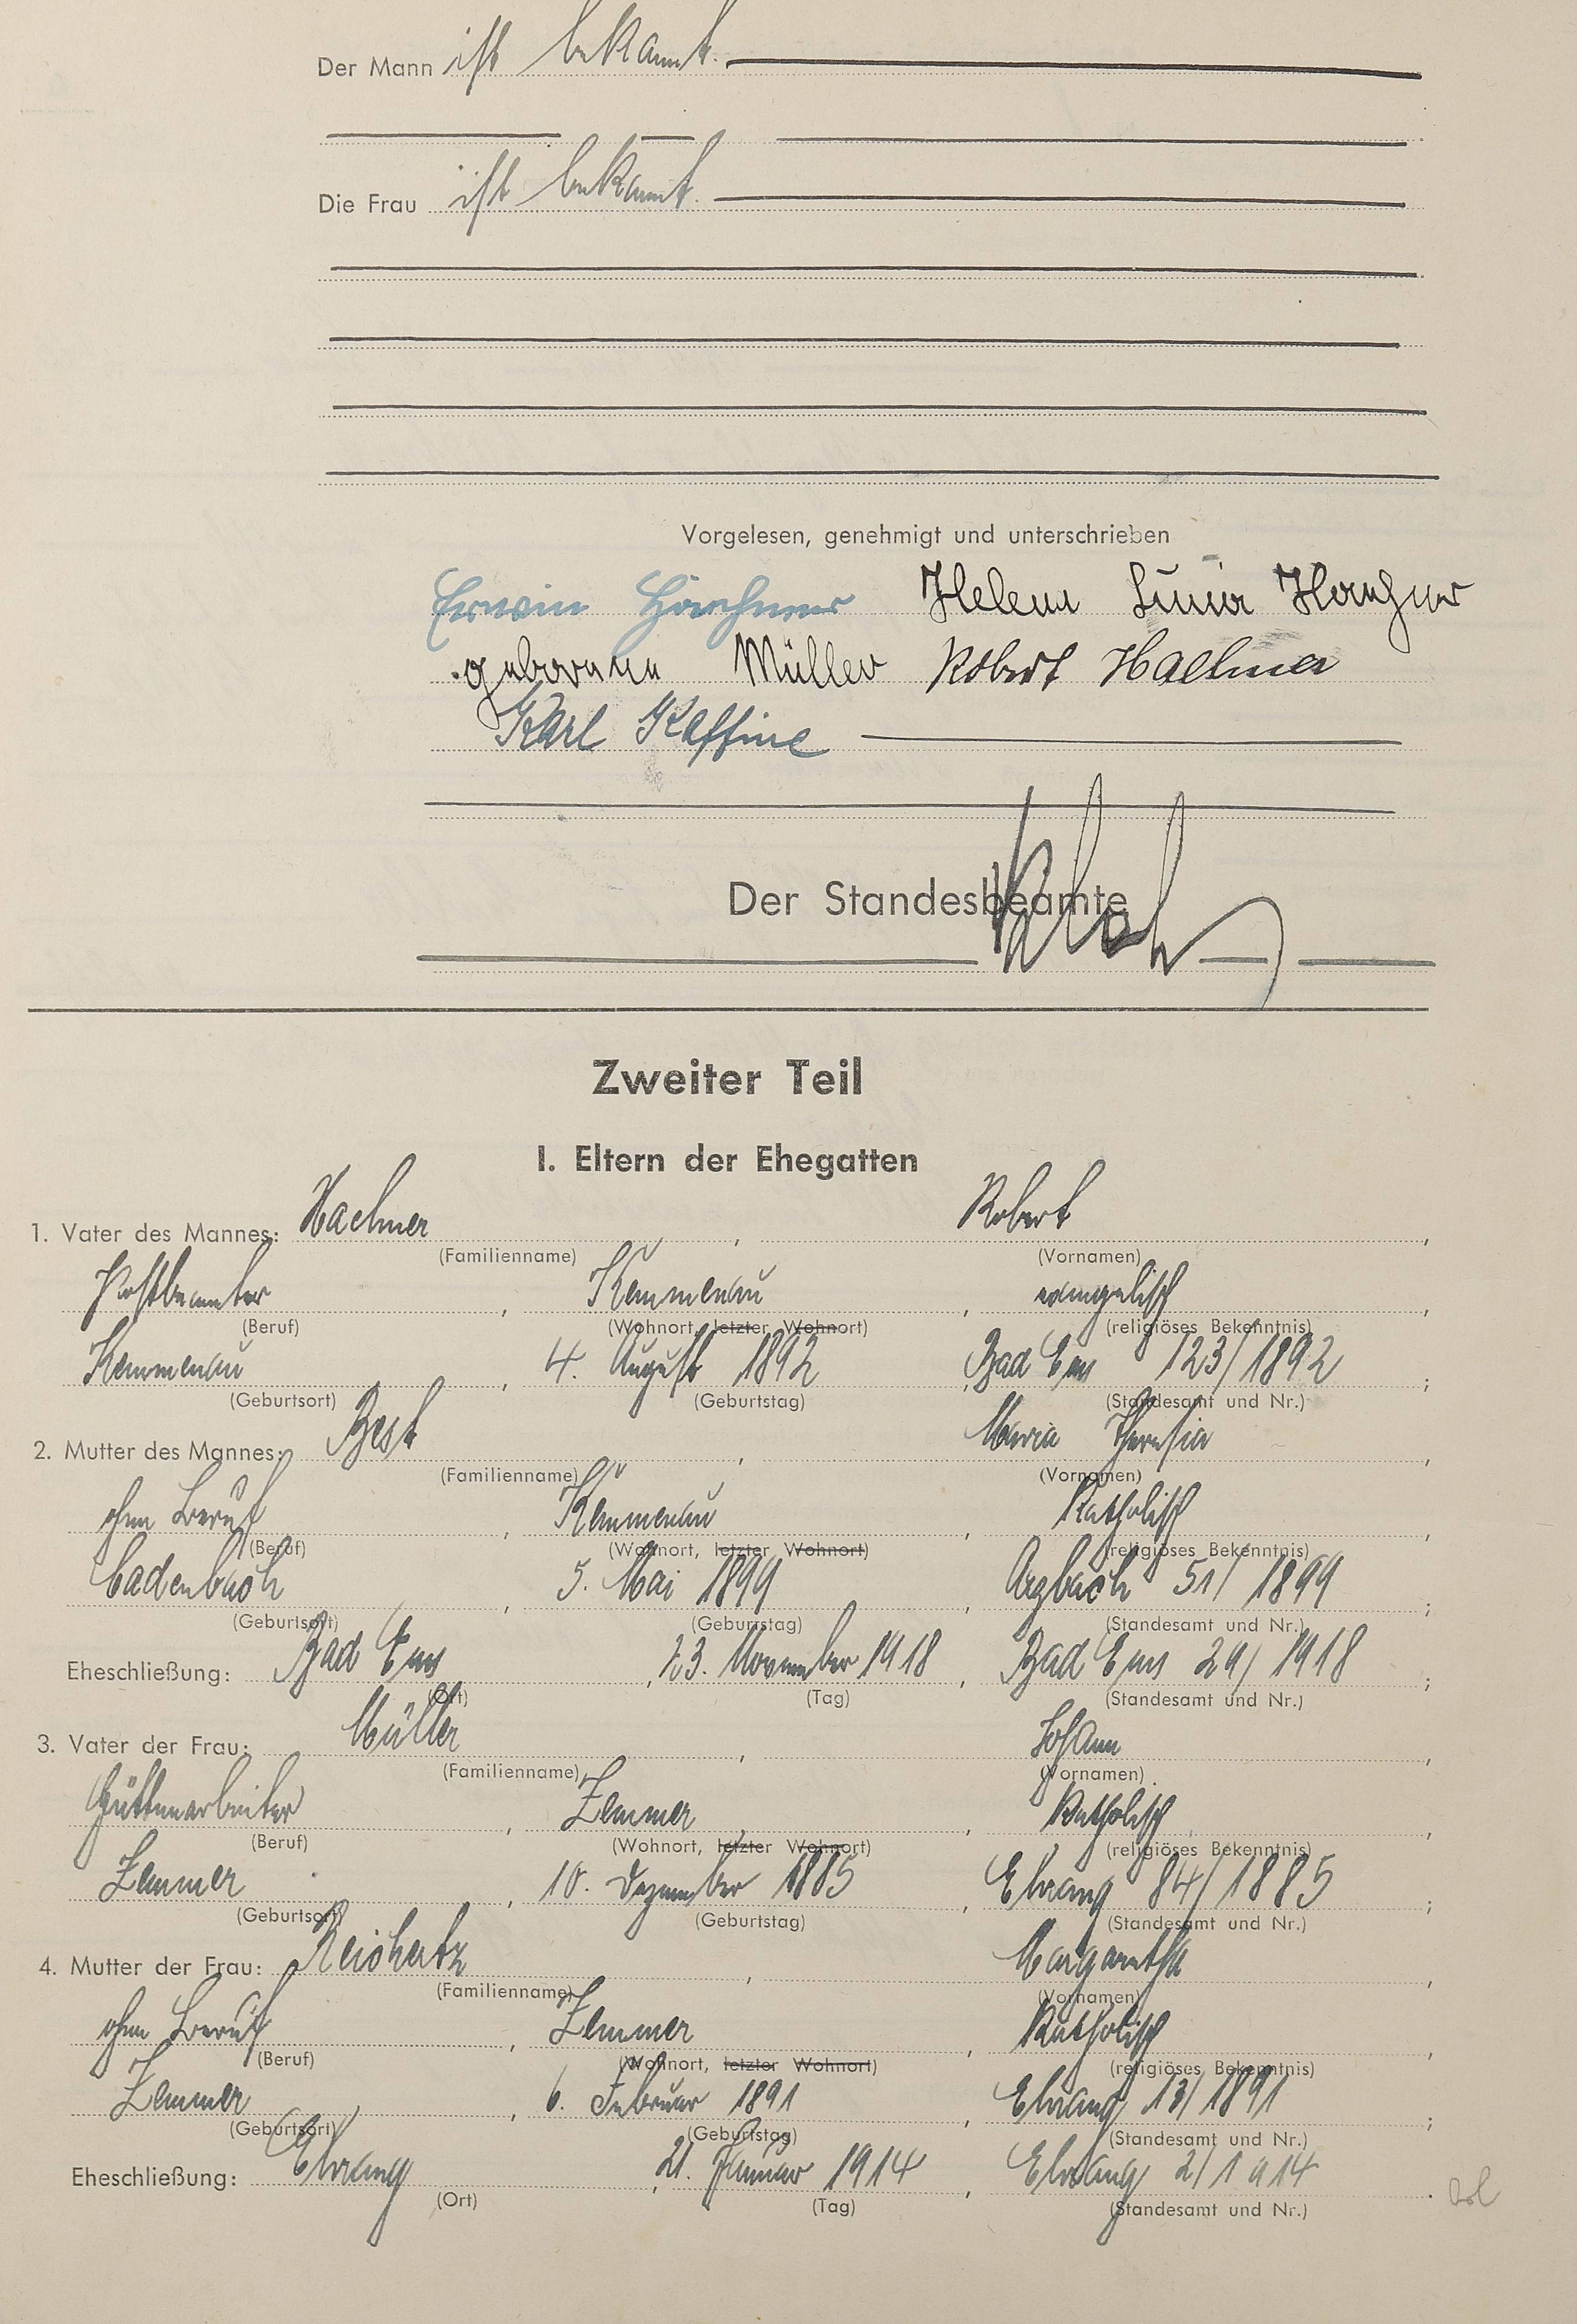 Der Mann ist bekannt.
Die Frau ist bekannt.
Vorgelesen, genehmigt und unterschrieben
Erwin Helena
geborene Müller Robert Haehner
Karl
Der Standesbeamte
Zweiter Teil
I. Eltern der Ehegatten
1. Vater des Mannes: Haehner, Robert,
(Familienname) (Vornamen)
Postbeamter, Kemmenau, evangelisch,
(Beruf) (Wohnort, letzter Wohnort) (religiöses Bekenntnis)
Kemmenau, 4. August 1892, Bad Ems 123/1892;
(Geburtsort) (Geburtstag) (Standesamt und Nr.)
2. Mutter des Mannes: Best, Maria Theresia,
(Familienname) (Vornamen)
ohne Beruf, Kemmenau, katholisch,
(Beruf) (Wohnort, letzter Wohnort) (religiöses Bekenntnis)
Cadenbach, 5. Mai 1899, Arzbach 51/1899;
(Geburtsort) (Geburtstag) (Standesamt und Nr.)
Eheschließung: Bad Ems, 23. November 1918, Bad Ems 29/1918;
(Ort) (Tag) (Standesamt und Nr.)
3. Vater der Frau: Müller, Johann,
(Familienname) (Vornamen)
Hüttenarbeiter, Zemmer, katholisch,
(Beruf) (Wohnort, letzter Wohnort) (religiöses Bekenntnis)
Zemmer, 10. Dezember 1885, Ehrang 84/1885;
(Geburtsort) (Geburtstag) (Standesamt und Nr.)
4. Mutter der Frau: Reichertz, Margaretha,
(Familienname) (Vornamen)
ohne Beruf, Zemmer, katholisch,
(Beruf) (Wohnort, letzter Wohnort) (religiöses Bekenntnis)
Zemmer, 6. Februar 1891, Ehrang 13/1891;
(Geburtsort) (Geburtstag) (Standesamt und Nr.)
Eheschließung: Ehrang, 21. Januar 1914, Ehrang 2/1914.
(Ort) (Tag) (Standesamt und Nr.)